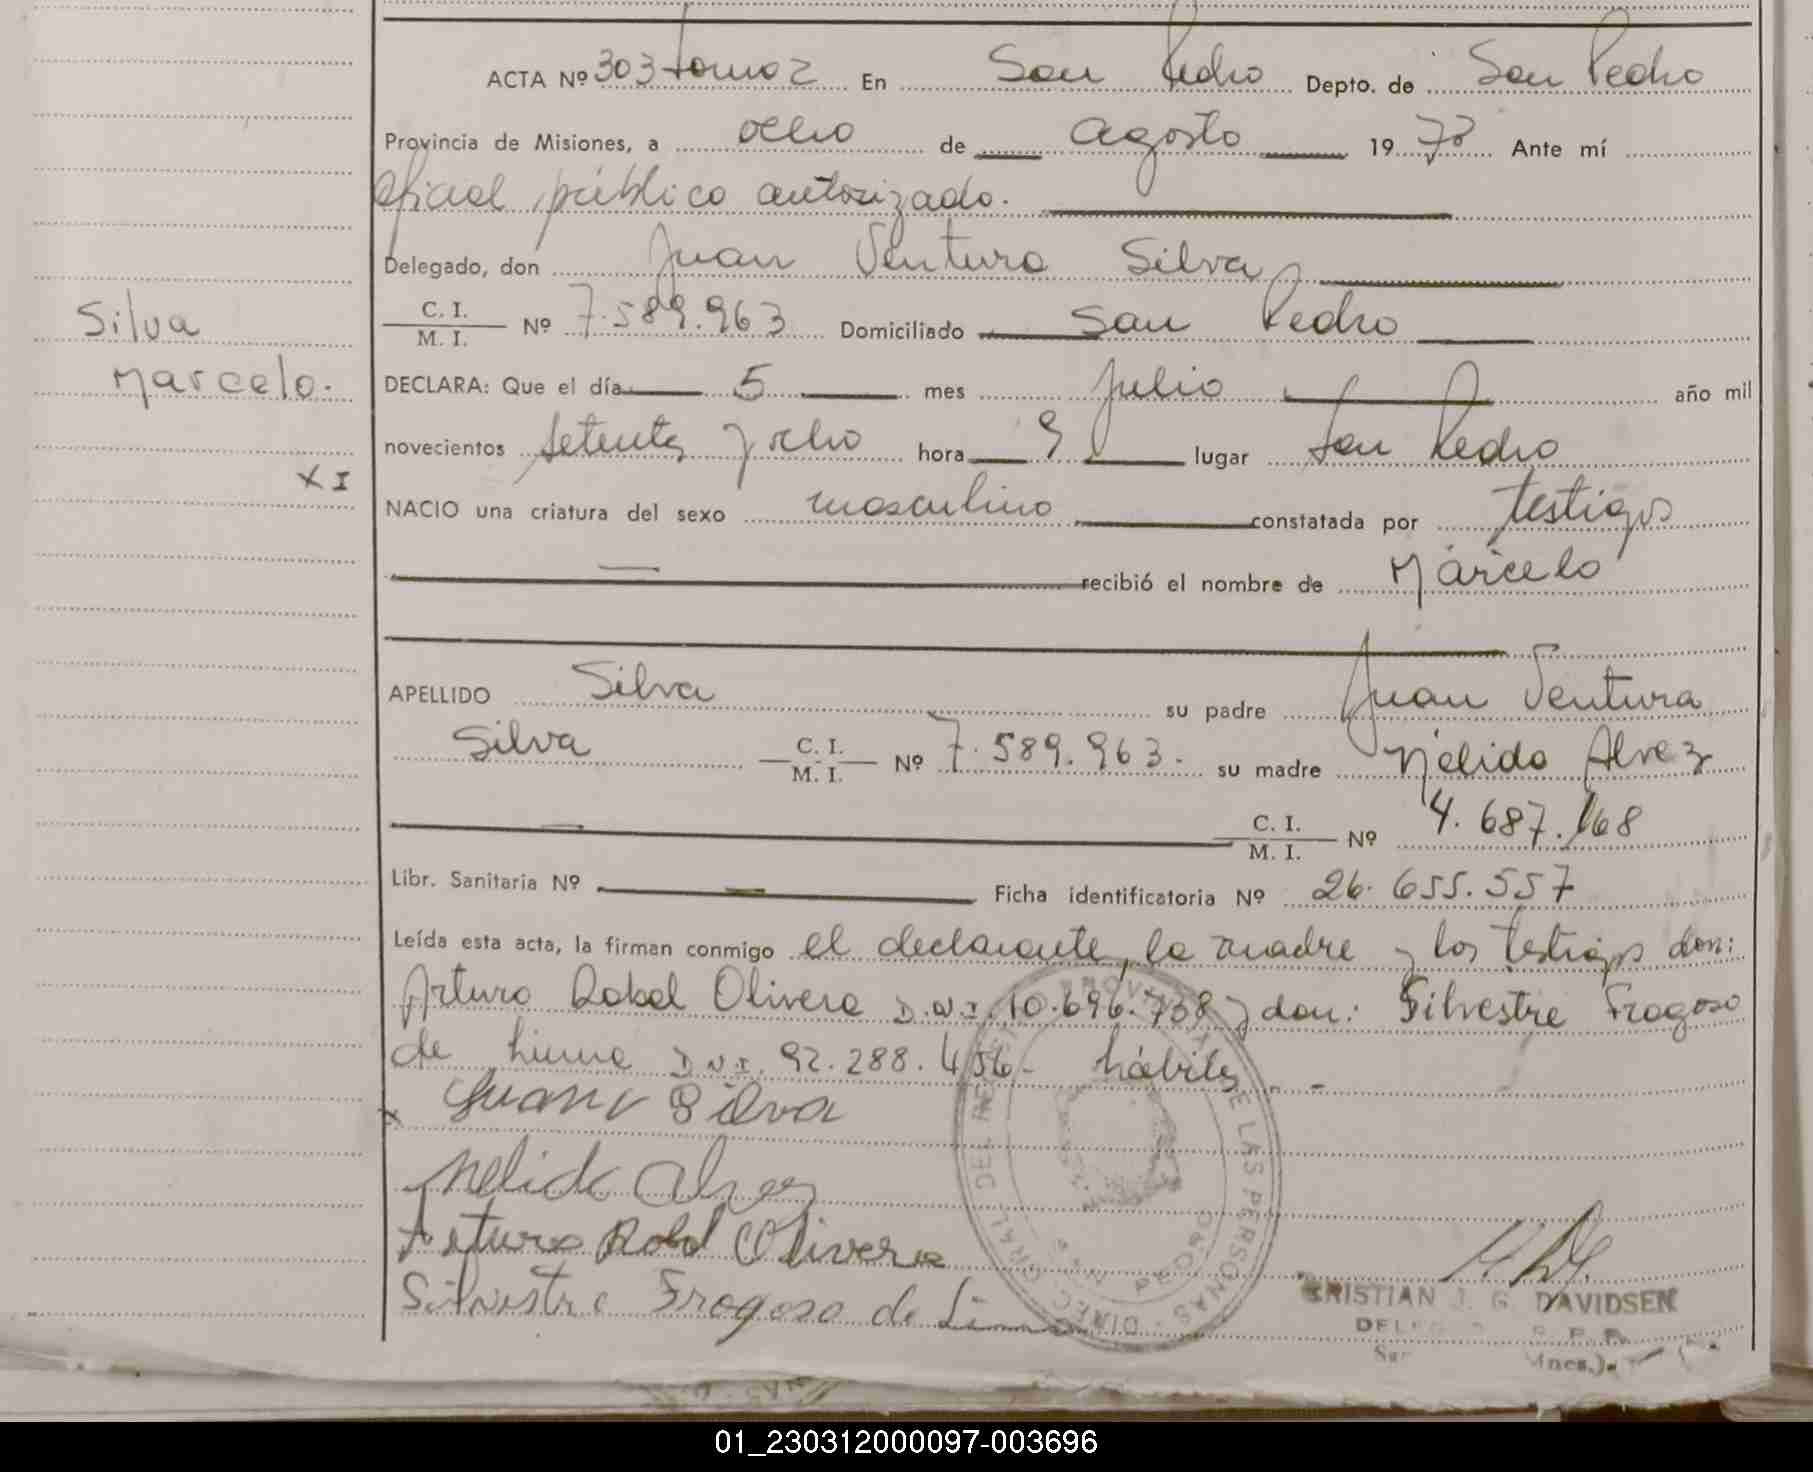 ACTA Nº 303 tomo 2 En San Pedro Depto. de San Pedro
Provincia de Misiones, a ocho de agosto 1978 Ante mí
oficial público autorizado.
Delegado, don Juan Ventura Silva
C. I. / M. I. Nº 7.589.963 Domiciliado San Pedro
Silva
Marcelo.
DECLARA: Que el día 5 mes julio año mil
novecientos setenta y ocho hora 9 lugar San Pedro
XI
NACIO una criatura del sexo masculino constatada por testigos
recibió el nombre de Marcelo
APELLIDO Silva su padre Juan Ventura
Silva C. I. / M. I. Nº 7.589.963. su madre Nélida Alvez
C. I. / M. I. Nº 4.687.168
Libr. Sanitaria Nº Ficha identificatoria Nº 26.655.557
Leída esta acta, la firman conmigo el declarante, la madre y los testigos don:
Arturo Robel Olivera D.N.I. 10.696.738 y don: Silvestre Fragoso
de Lima D.N.I. 92.288.456- hábiles. -
x Juan V Silva
Nelida Alvez
Arturo Robel Olivera
Silvestre Fragoso de Lima
DIREC. GRAL. DEL PROVINCIAL DE LAS PERSONAS
CRISTIAN J. G. DAVIDSEN
Mnes.).
01_230312000097-003696